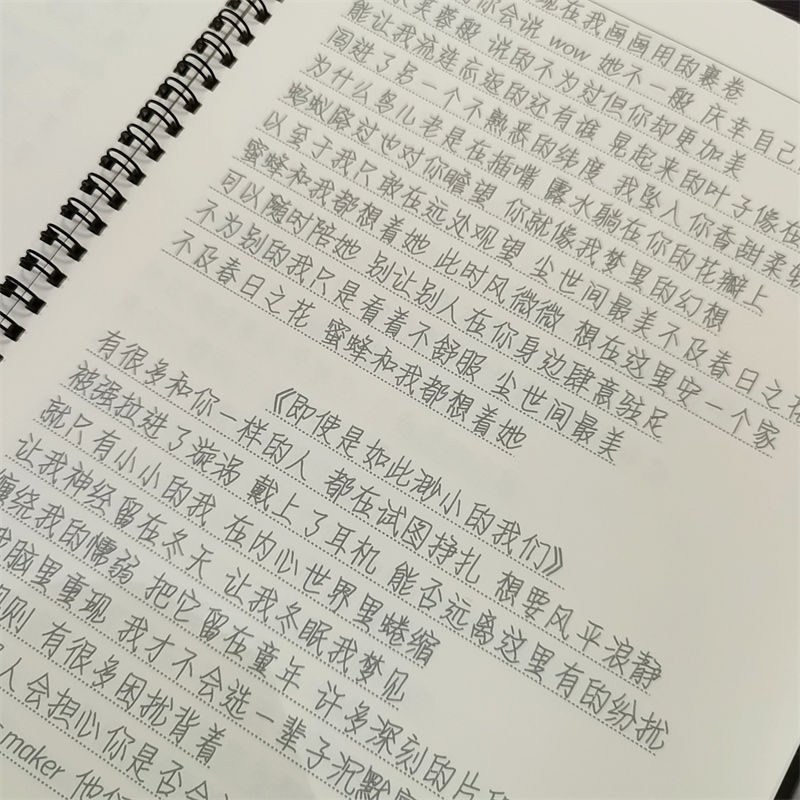 现在我画画用的襄卷
你会说 wow 她不一般 庆幸自己
芙蓉般 说的不为过但你却更加美
能让我流连忘返的还有谁 晃起来的叶子像在
闯进了另一个不熟悉的纬度 我坠入你香甜柔软
为什么鸟儿老是在插嘴 露水躺在你的花瓣上
蚂蚁路过也对你瞻望 你就像我梦里的幻想
以至于我只敢在远处观望 尘世间最美不及春日之花
蜜蜂和我都想着她 此时风微微 想在这里安一个家
可以随时陪她 别让别人在你身边肆意驻足
不为别的我只是看着不舒服 尘世间最美
不及春日之花 蜜蜂和我都想着她
《即使是如此渺小的我们》
有很多和你一样的人 都在试图挣扎 想要风平浪静
被强拉进了漩涡 戴上了耳机 能否远离这里有的纷扰
就只有小小的我 在内心世界里蜷缩
让我神经留在冬天 让我冬眠我梦见
缠绕我的懦弱 把它留在童年 许多深刻的片
脑里重现 我才不会选一辈子沉默
则 有很多困扰背着
人会担心你是否会
maker 他们